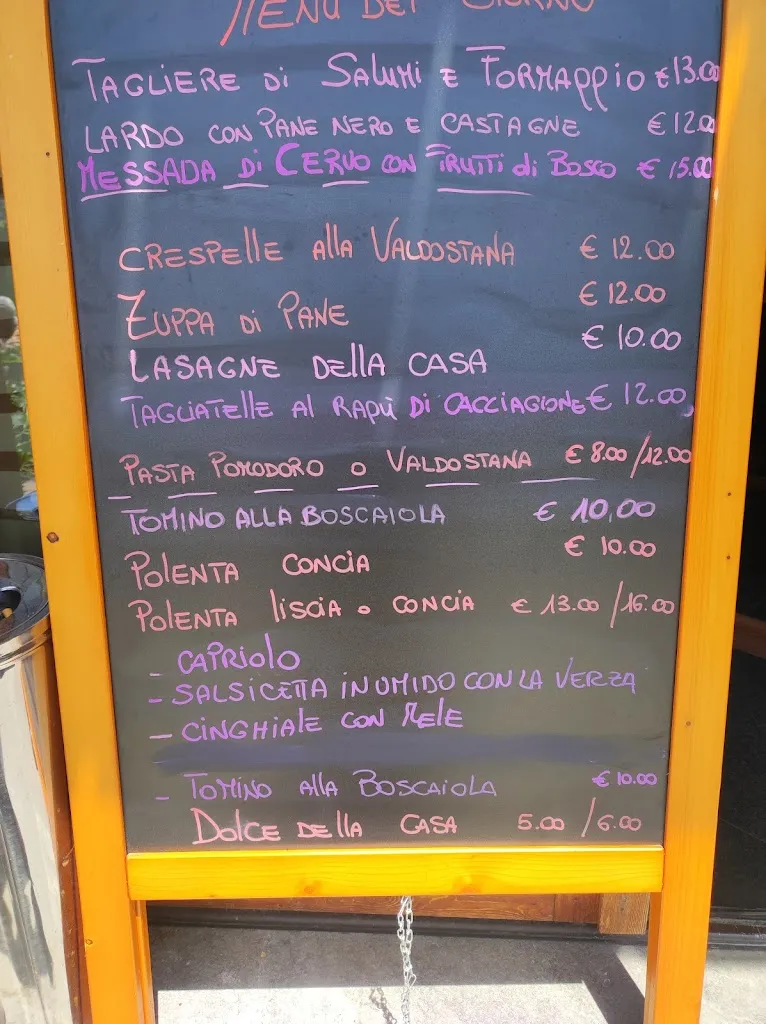 MENÙ DEL GIORNO
TAGLIERE di SALUMI E FORMAGGIO €13.00
LARDO CON PANE NERO E CASTAGNE €12.00
MESSADA di CERVO CON FRUTTI di BOSCO € 15.00
CRESPELLE Alla VALDOSTANA € 12.00
ZUPPA di PANE € 12.00
LASAGNE DELLA CASA € 10.00
TAGLIATELLE AL RAGÙ DI CACCIAGIONE € 12.00
PASTA POMODORO O VALDOSTANA € 8.00/12.00
TOMINO ALLA BOSCAIOLA € 10,00
POLENTA CONCIA € 10.00
POLENTA liscia o CONCIA € 13.00/16.00
- CAPRIOLO
- SALSICETTA IN UMIDO CON LA VERZA
- CINGHIALE CON MELE
- TOMINO Alla BOSCAIOLA € 10.00
DOLCE DELLA CASA 5.00/6.00